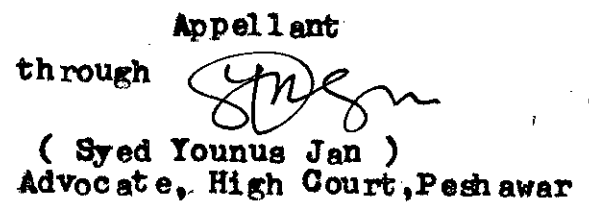 Appellant
through
( Syed Younus Jan )
Advocate, High Court,Peshawar